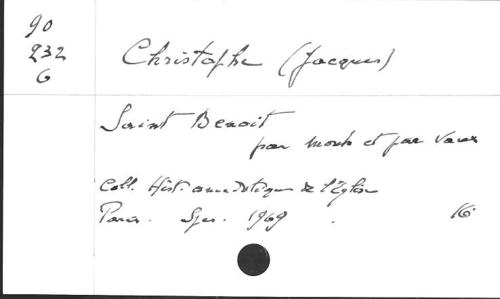 90
232
6
Christophe (Jacques)
Saint Benoit
par monts et par vaux
Coll. Hist. anecdotique de l'Eglise
Paris. Spes. 1969. 16°